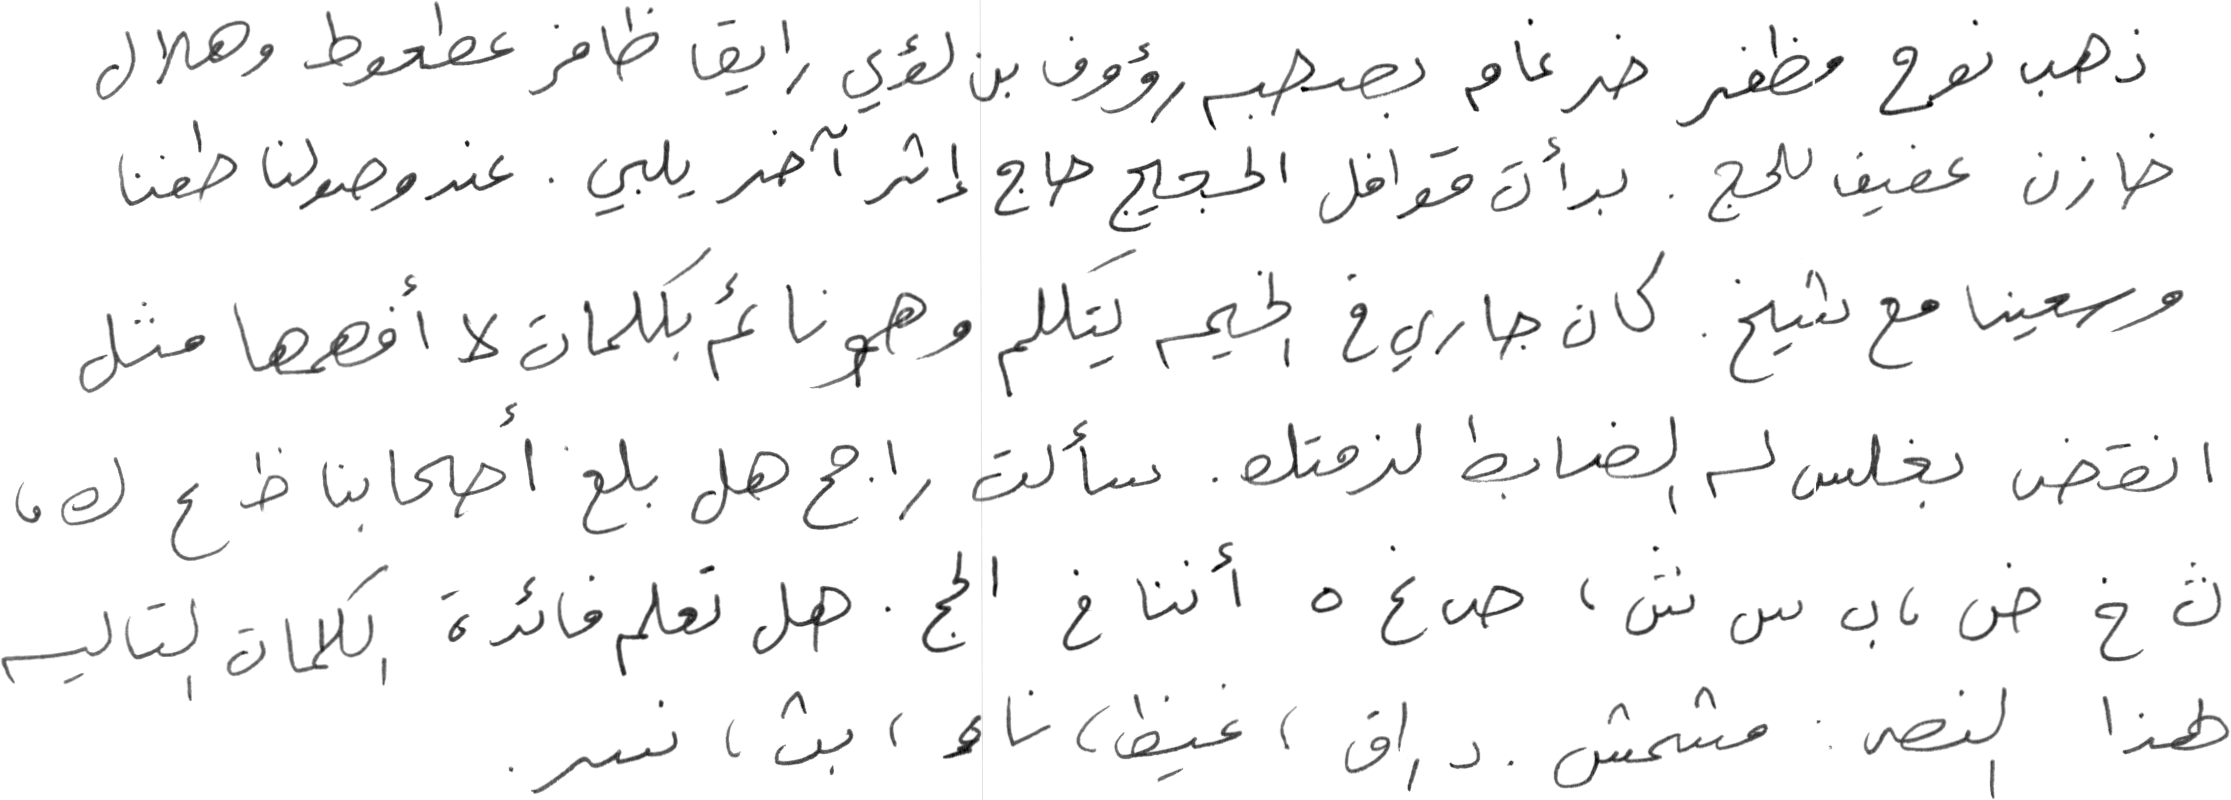 ذهب نوح مظفر ضرغام بصحبه رؤوف بن لؤي رايقا ظافز عطعوط وهلال
خازن عفيف للحج . بدأت قوافل الحجيج حاج إثر آخر يلبي . عند وصولنا طفنا
وسعينا مع شيخ . كان جاري في الخيم يتكلم وهو نائم بكلمات لا أفهمها مثل
انقض بغلس له الضابط لزمتك . سألت راجح هل بلغ أصحابنا ظ ع ك ،
ث خ ض ، ب س ش ، ص غ ه أننا في الحج . هل تعلم فائدة الكلمات التاليه
لهذا النص : مشمش . دراق ، غيظ ، ناء ، بث ، نسر .